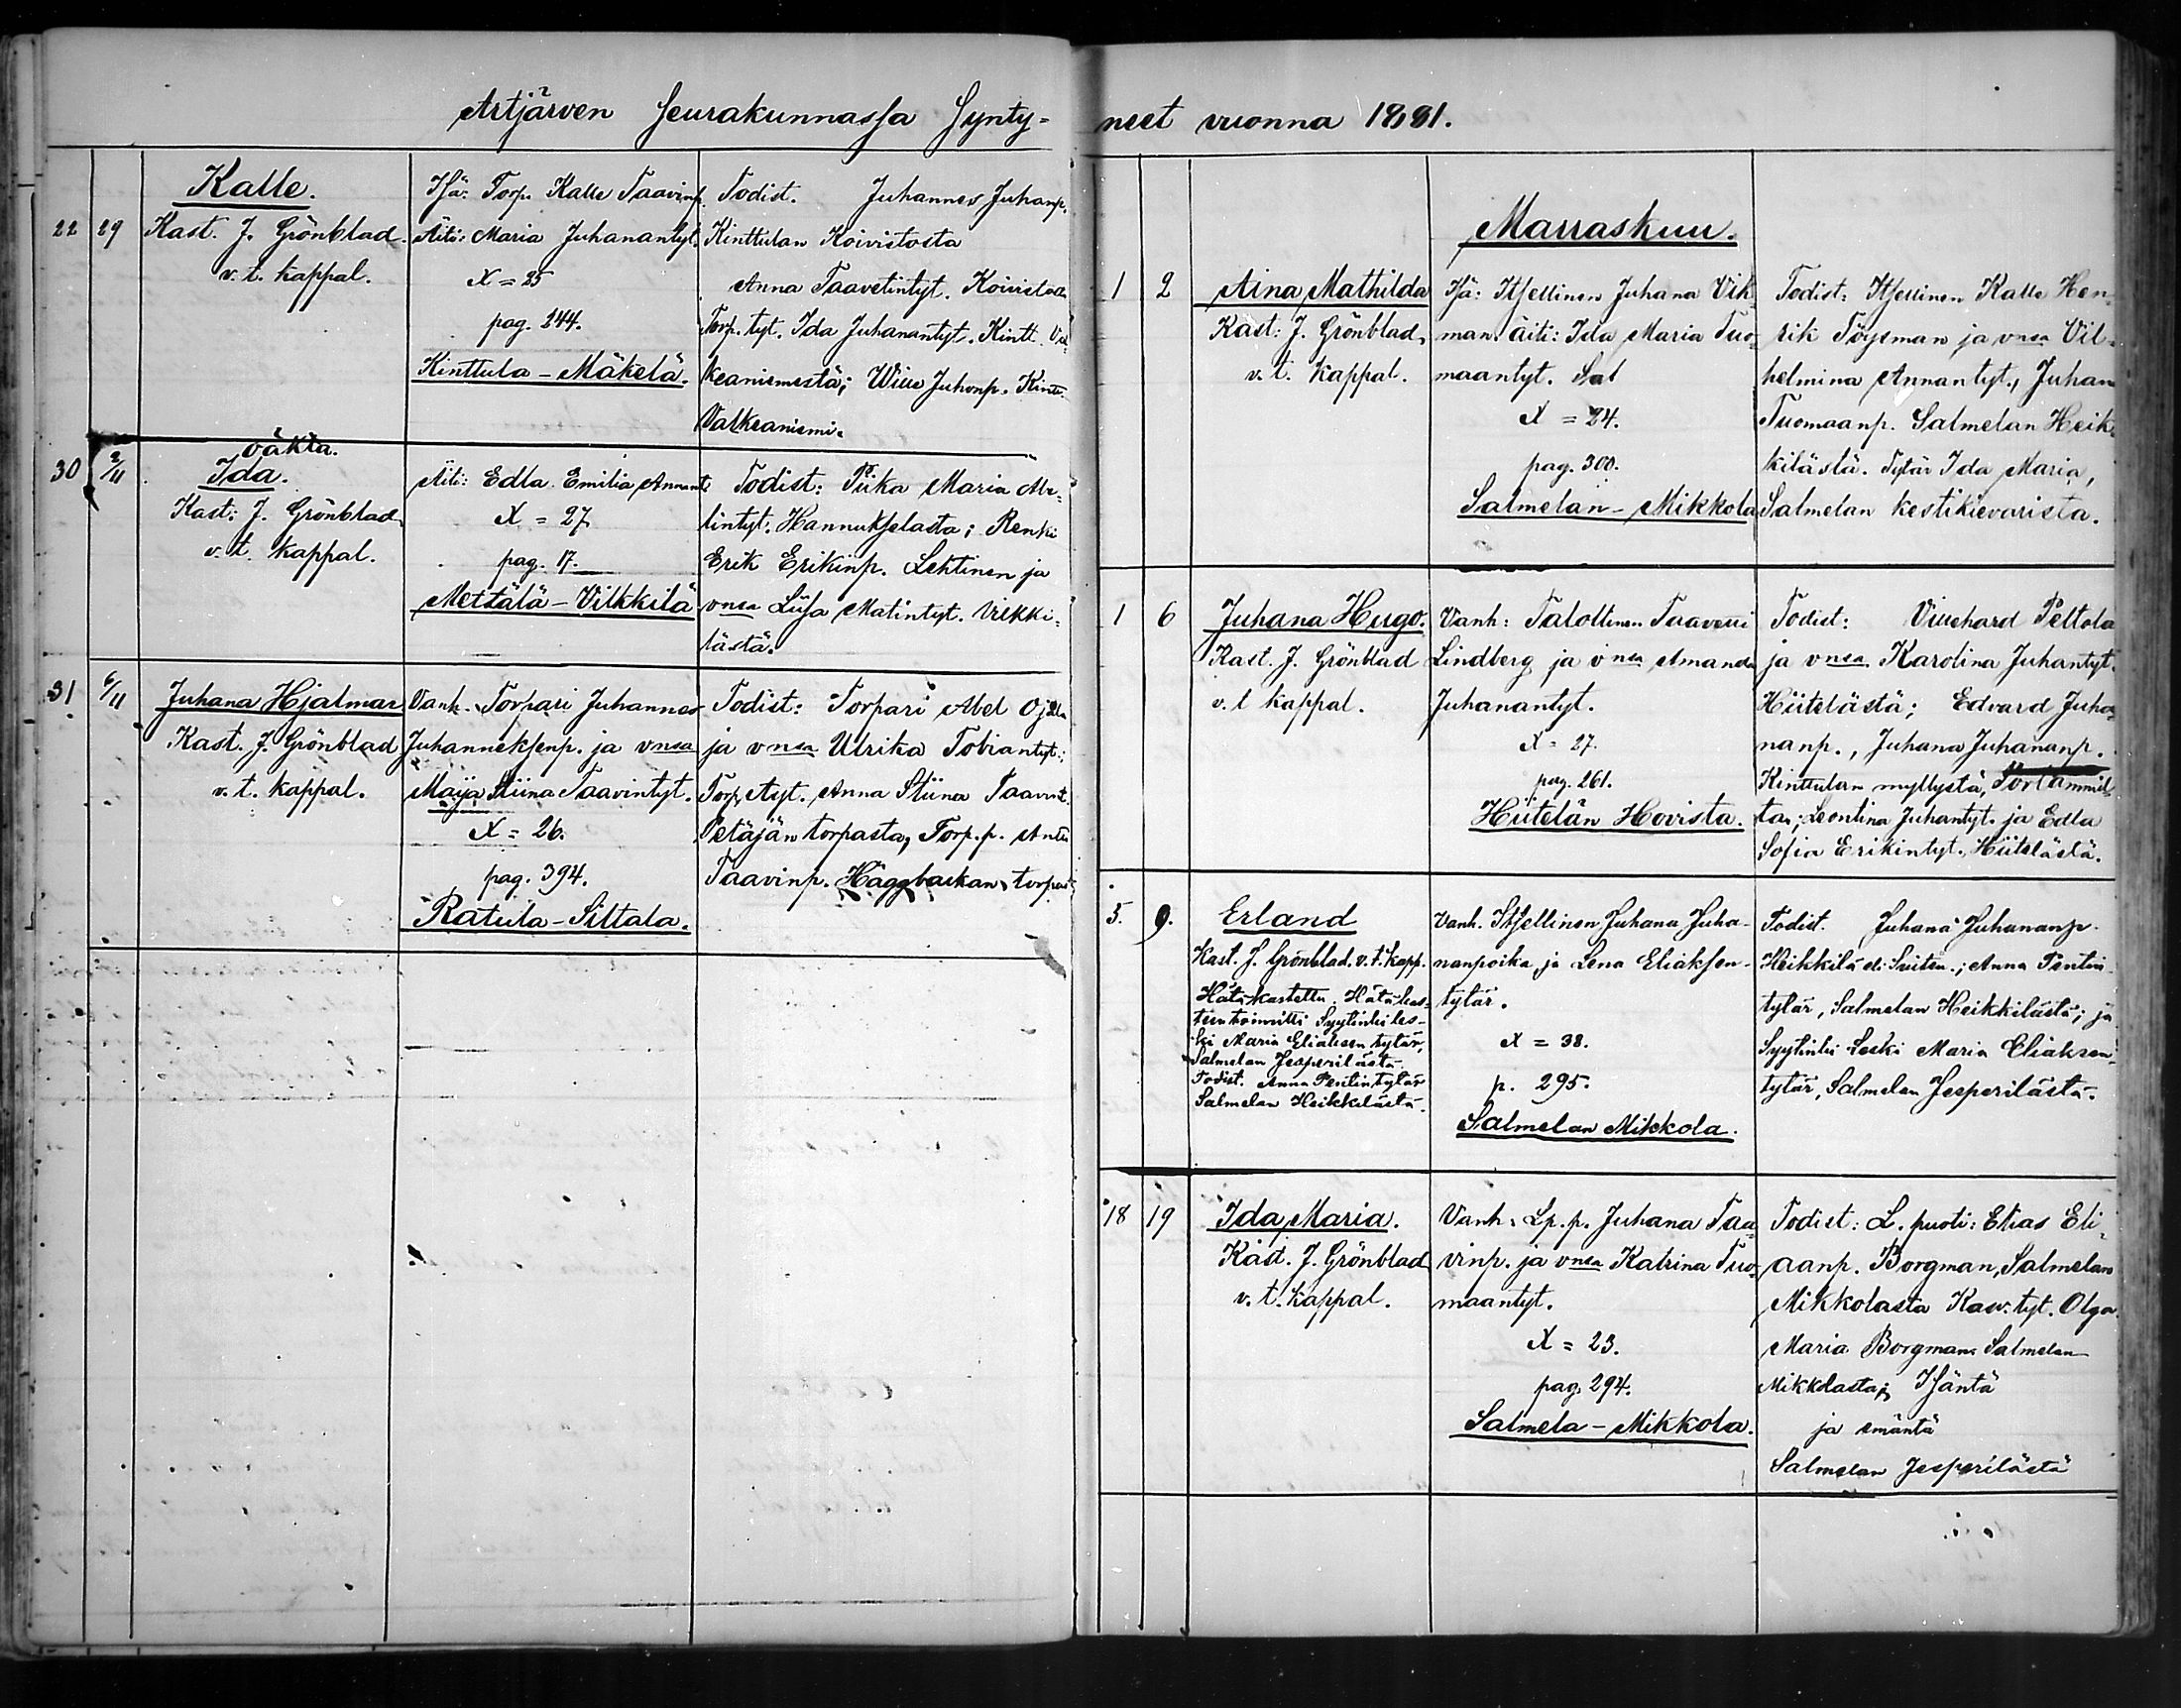 Artjärven seurakunnassa synty-
neet vuonna 1891.
22 29
Kalle.
Kast. J. Grönblad.
v. t. kappal.
Isä: Torp. Kalle Taavinp.
Äiti: Maria Juhanantyt.
X = 25
pag. 244.
Kinttula - Mäkelä.
Todist. Juhannes Juhanp.
Kinttulan Koivistosta
Anna Taavetintyt. Koivistosta
Torp. tyt. Ida Juhanantyt. Kintt.
keaniemestä; Juhonp. Kintt.
Valkeaniemi.
30 2/11
oäkta.
Ida.
Kast: J. Grönblad
v. t. kappal.
Äiti: Edla Emilia Annant.
X = 27
pag. 17.
Mettälä - Vilkkilä
Todist: Piika Maria
tintyt. Hannukselasta; Renki
Erik Erikinp. Lehtinen ja
vnsa Liisa Matintyt. Vilkki-
lästä.
31 6/11
Juhana Hjalmar
Kast. J. Grönblad
v. t. kappal.
Vanh. Torpari Juhannes
Juhanneksenp. ja vnsa
Maija Stiina Taavintyt.
X = 26.
pag. 394.
Ratula - Siltala.
Todist: Torpari Abel Ojala
ja vnsa Ulrika Tobiantyt.;
Torp. tyt. Anna Stiina Taavint.
Petäjän torpasta, Torp. p. Antti
Taavinp. Häggbackan torpast.
Marraskuu.
1 2
Aina Mathilda
Kast: J. Grönblad,
v. t. kappal.
Isä: Itsellinen Juhana Vik-
man äiti: Ida Maria Tuo-
maantyt. Sal
X = 24.
pag. 300.
Salmelan - Mikkola
Todist: Itsellinen Kalle Hen-
rik Töysman ja vnsa Vil-
helmina Annantyt., Juhan
Tuomaanp. Salmelan Heik-
kilästä. Tytär Ida Maria,
Salmelan kestikievarista.
1 6
Juhana Hugo.
Kast. J. Grönblad
v. t kappal.
Vanh: Talollinen Taavetti
Lindberg ja vnsa Amanda
Juhanantyt.
X = 27.
pag. 261.
Hiitelän Hovista.
Todist: Viuehard Peltola
ja vnsa Karolina Juhantyt.
Hiitelästä; Edvard Juha-
nanp., Juhana Juhananp.
Kinttulan myllystä,
ta; Leontina Juhantyt. ja Edla
Sofia Erikintyt., Hiitelästä.
5. 9.
Erland
Kast. J. Grönblad. v. t. kapp.
Hätäkastettu. Hätäkas-
teen toimitti Syytinki les-
ki Maria Eliaksen tytär,
Salmelan Jesperilästä.
Todist. Anna Penttintytär
Salmelan Heikkilästä.
Vanh. Itsellinen Juhana Juha-
nanpoika ja Lena Eliaksen-
tytär.
X = 38.
p. 295.
Salmelan Mikkola.
Todist. Juhana Juhananp.
Heikkilä; Anna Pentin-
tytär, Salmelan Heikkilästä; ja
Syytinki Leski Maria Eliaksen-
tytär, Salmelan Jesperilästä.
18 19
Ida Maria.
Kast. J. Grönblad
v. t. kappal.
Vanh: Lp. p. Juhana Taa-
vinp. ja vnsa Katrina Tuo-
maantyt.
X = 23.
pag. 294.
Salmela - Mikkola.
Todist: L. puoti: Elias Eli-
aanp. Borgman, Salmelan
Mikkolasta Kasv. tyt. Olga
Maria Borgman Salmelan
Mikkolasta; Isäntä
ja emäntä
Salmelan Jesperilästä